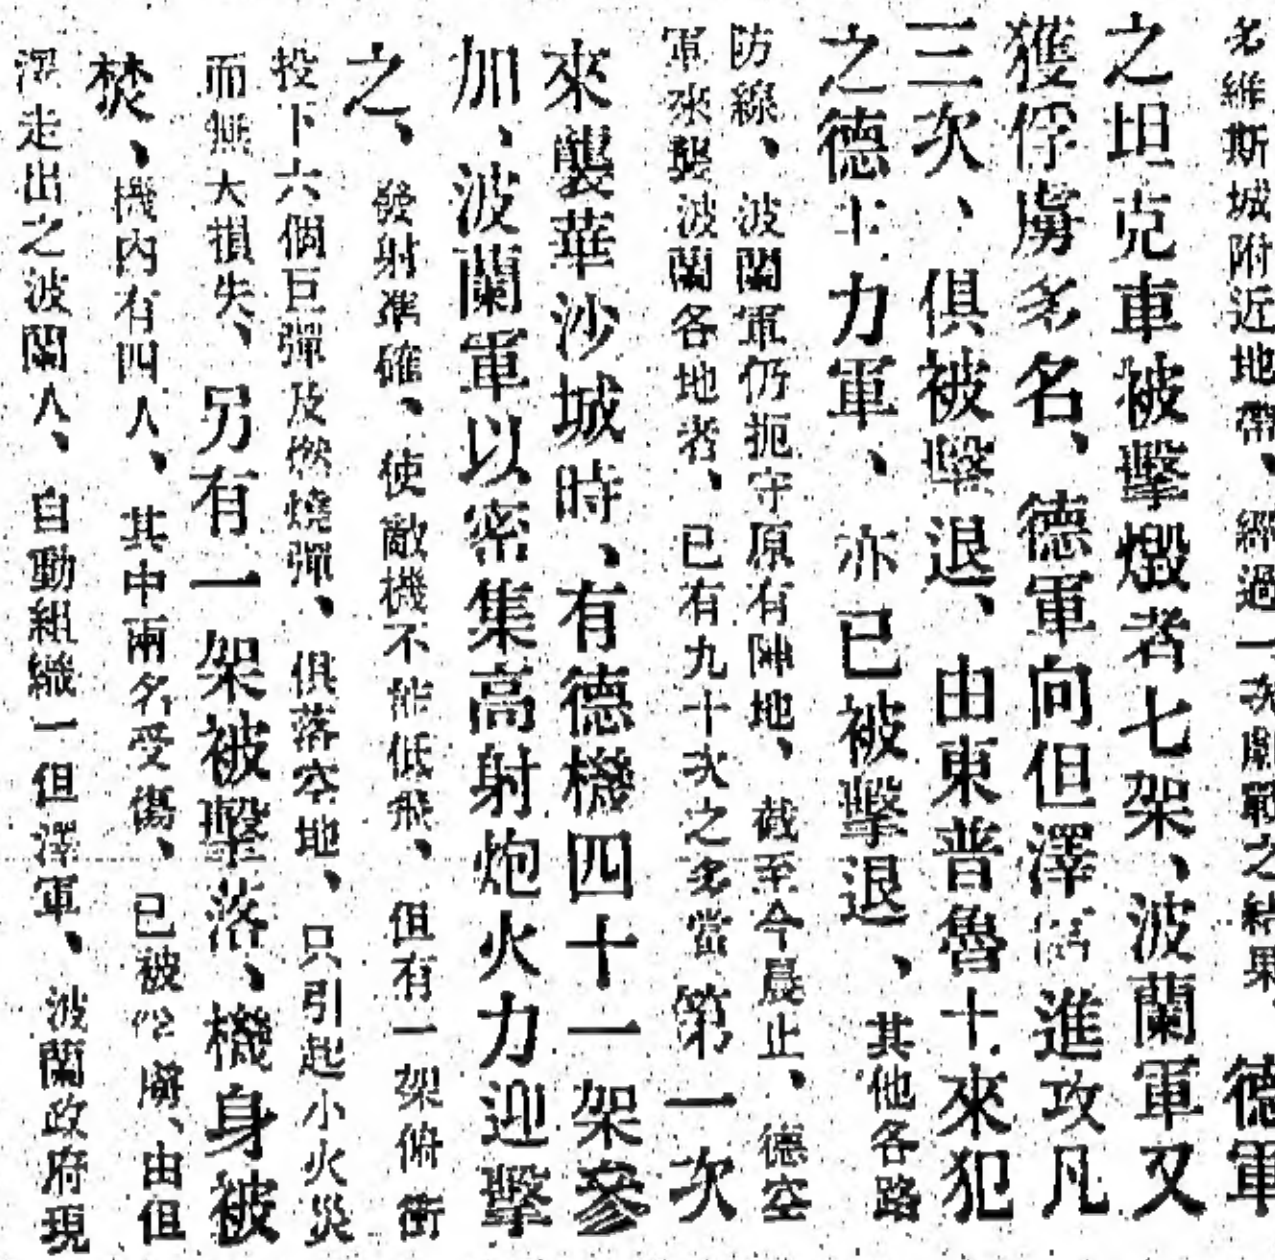 名維斯城附近地帶、經過一次劇戰之結果、德軍
之坦克車被擊燬者七架、波蘭軍又
獲俘虜多名、德軍向但澤進攻凡
三次、俱被擊退、由東普魯士來犯
之德主力軍、亦已被擊退、其他各路
防線、波蘭軍仍扼守原有陣地、截至今晨止、德空
軍來襲波蘭各地者、已有九十次之多當第一次
來襲華沙城時、有德機四十一架參
加、波蘭軍以密集高射炮火力迎擊
之、發射準確、使敵機不能低飛、但有一架俯衝
投下六個巨彈及燃燒彈、俱落空地、只引起小火災
而無大損失、另有一架被擊落、機身被
焚、機內有四人、其中兩名受傷、已被俘虜、由但
澤走出之波蘭人、自動組織一但澤軍、波蘭政府現